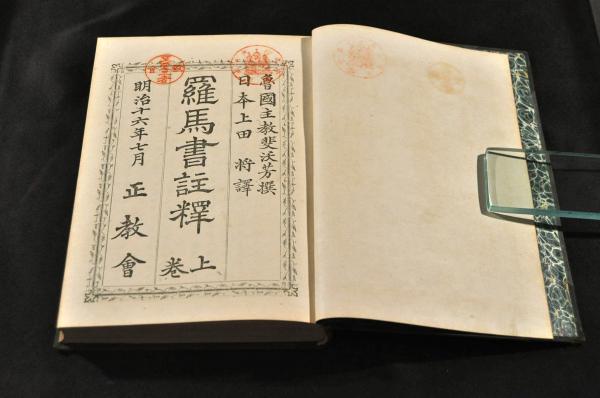 魯國主教斐沃芳撰
日本上田　將譯
羅馬書註釋　上卷
明治十六年七月　正教會